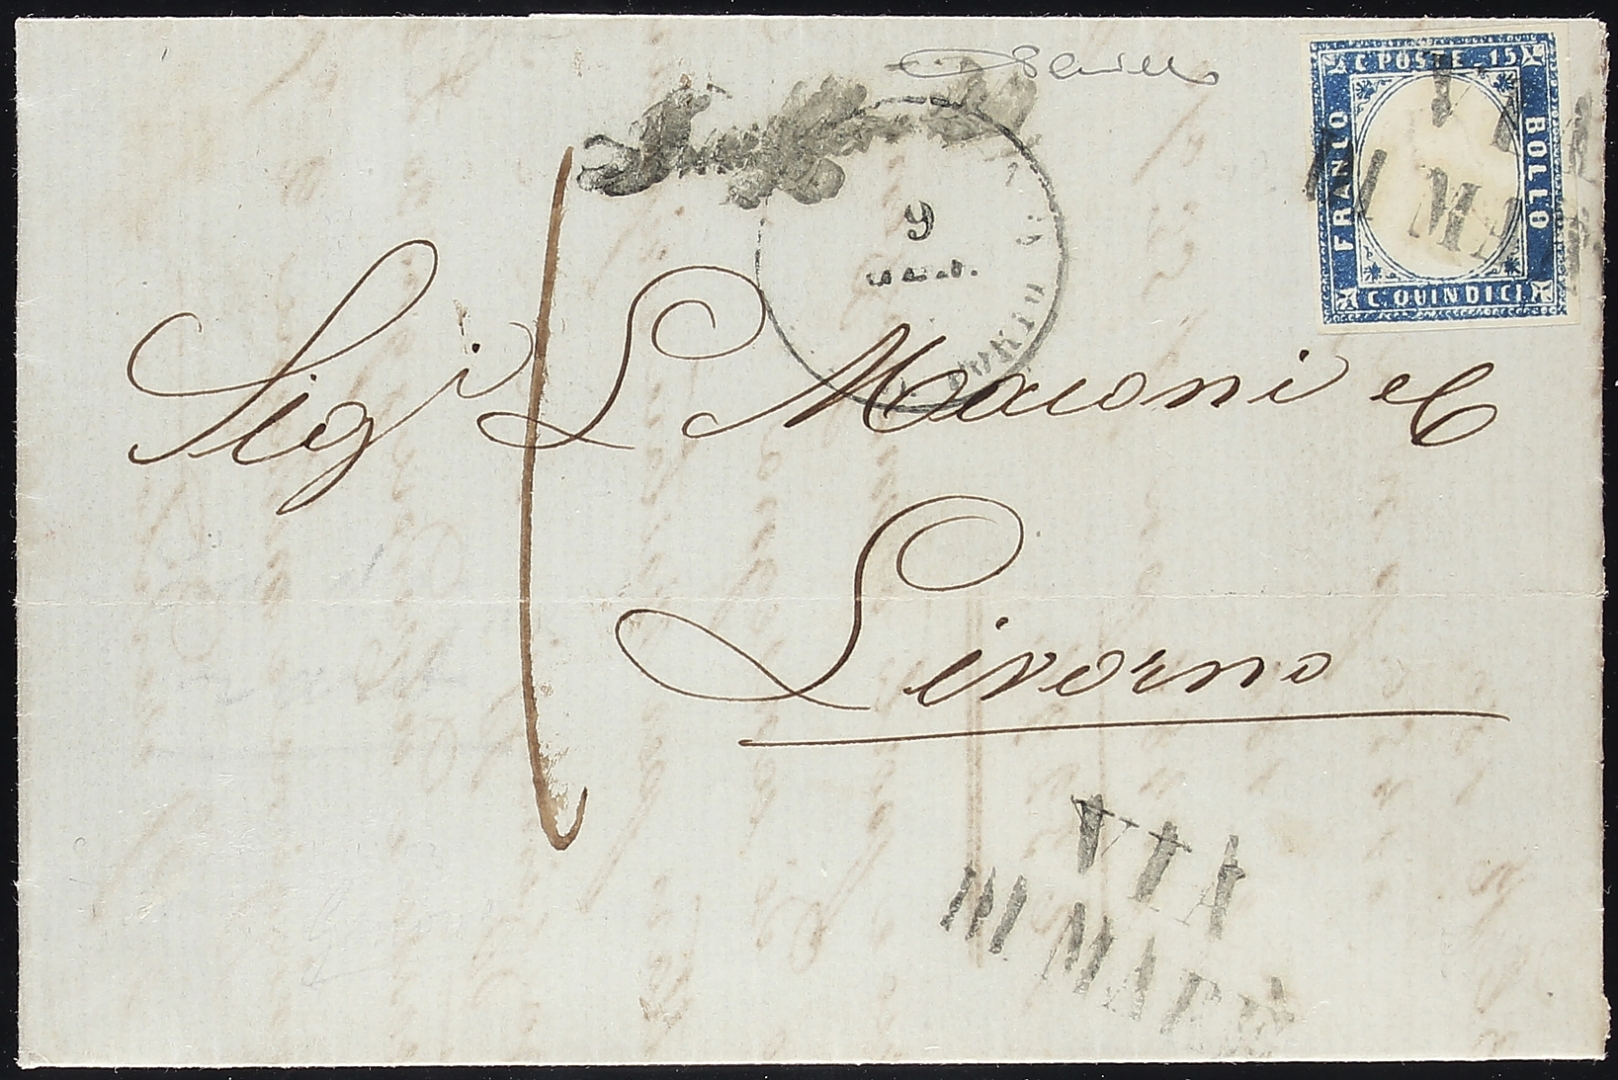 C. POSTE. 15
FRANCO
BOLLO
C. QUINDICI
VIA
DI MARE
9
Sigi L Maconi e C
Livorno
VIA
DI MARE